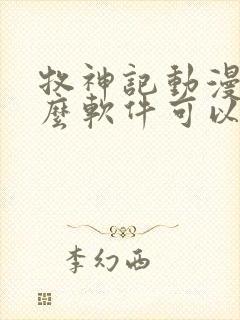 牧神記動漫
麼軟件可以
李幻西